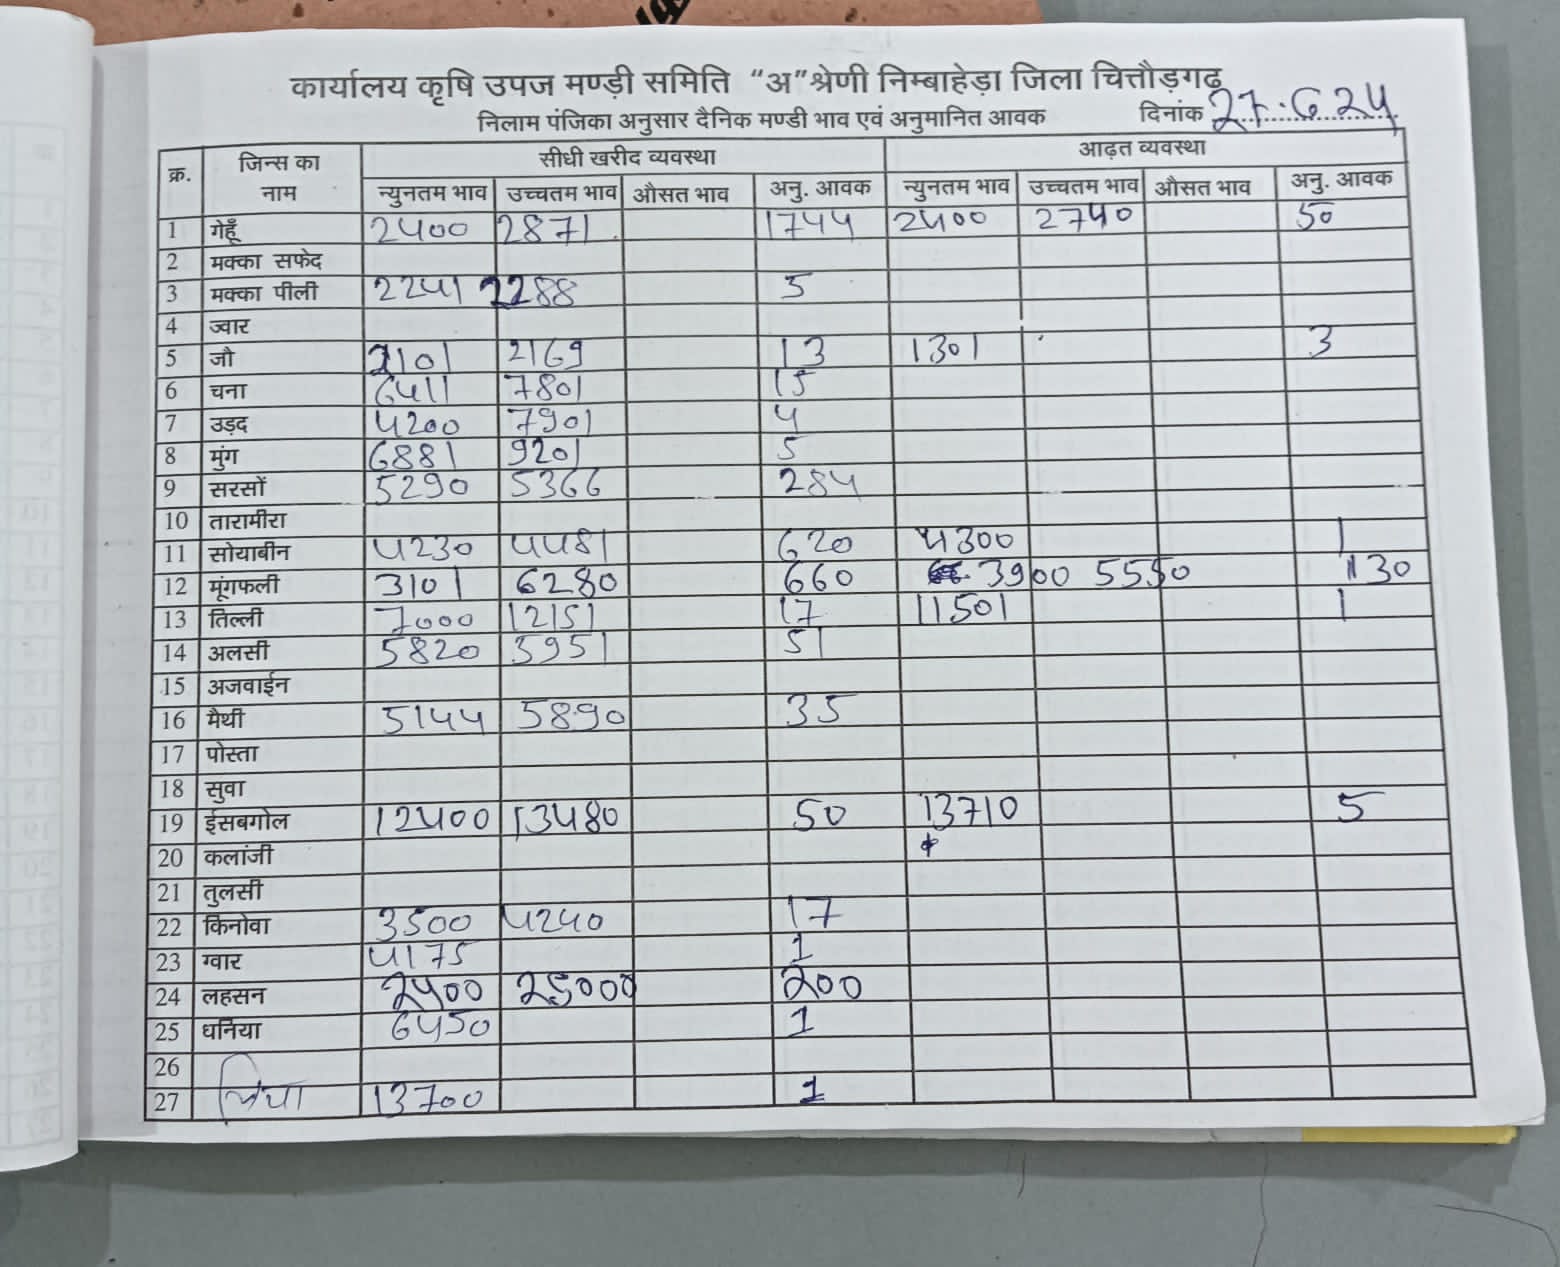 कार्यालय कृषि उपज मण्डी समिति "अ"श्रेणी निम्बाहेड़ा जिला चित्तौड़गढ़
निलाम पंजिका अनुसार दैनिक मण्डी भाव एवं अनुमानित आवक दिनांक 27.6.24
क्र. जिन्स का नाम सीधी खरीद व्यवस्था आढ़त व्यवस्था
न्युनतम भाव उच्चतम भाव औसत भाव अनु. आवक न्युनतम भाव उच्चतम भाव औसत भाव अनु. आवक
1 गेहूँ 2400 2871 1744 2400 2740 50
2 मक्का सफेद
3 मक्का पीली 2241 2288 5
4 ज्वार
5 जौ 2101 2169 13 1301 3
6 चना 6411 7801 15
7 उड़द 4200 7901 4
8 मुंग 6881 9201 5
9 सरसों 5290 5366 284
10 तारामीरा
11 सोयाबीन 4230 4481 620 4300 1
12 मूंगफली 3101 6280 660 3900 5550 130
13 तिल्ली 7000 12151 17 11501 1
14 अलसी 5820 5951 51
15 अजवाईन
16 मैथी 5144 5890 35
17 पोस्ता
18 सुवा
19 ईसबगोल 12400 13480 50 13710 5
20 कलांजी
21 तुलसी
22 किनोवा 3500 4240 17
23 ग्वार 4175 1
24 लहसन 2400 25000 200
25 धनिया 6450 1
26
27 13700 1